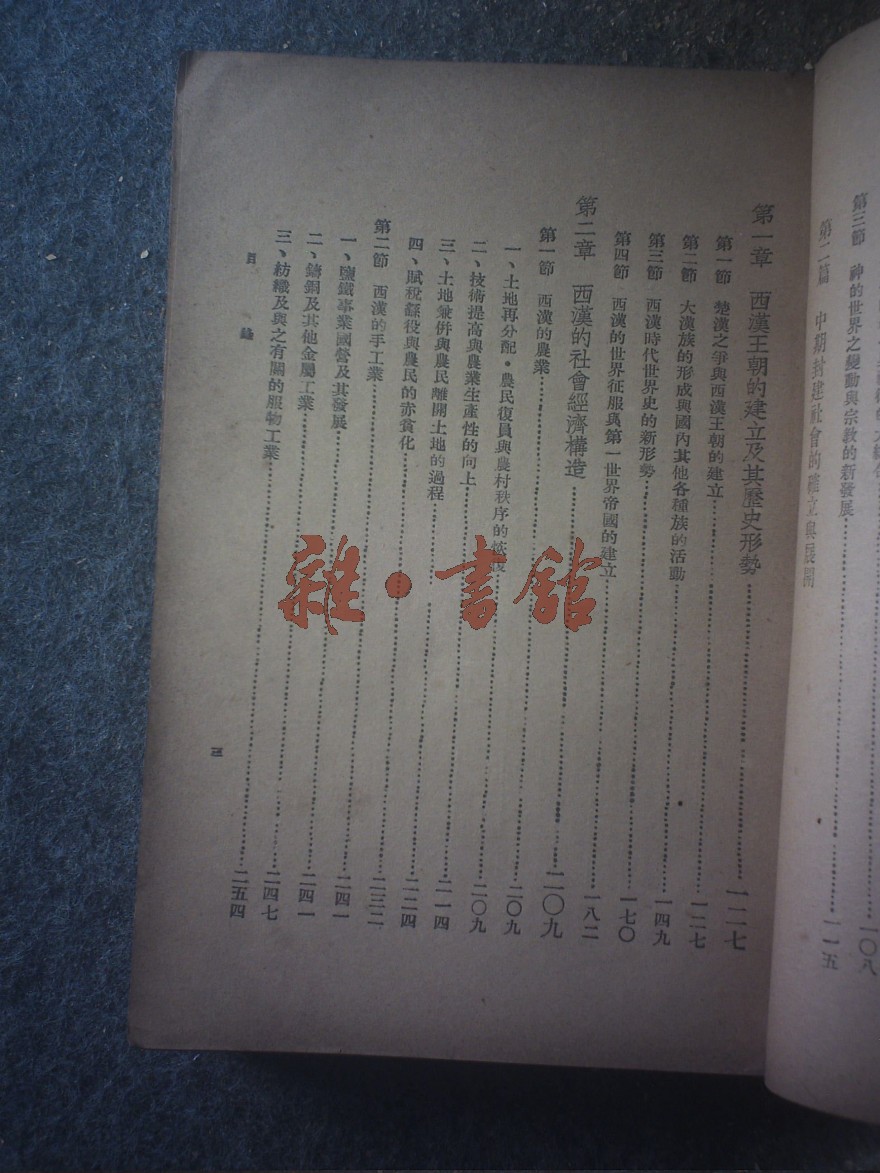 第三節 神的世界之變動與宗教的新發展……一〇八
第二篇 中期封建社會的確立與展開……一一五
第一章 西漢王朝的建立及其歷史形勢……一二七
第一節 楚漢之爭與西漢王朝的建立……一二七
第二節 大漢族的形成與國內其他各種族的活動……一四九
第三節 西漢時代世界史的新形勢……一七〇
第四節 西漢的世界征服與第一世界帝國的建立……一八二
第二章 西漢的社會經濟構造……二〇九
第一節 西漢的農業……二〇九
一、土地再分配·農民復員與農村秩序的恢復……二〇九
二、技術提高與農業生產性的向上……二一四
三、土地兼併與農民離開土地的過程……二二四
四、賦稅繇役與農民的赤貧化……二三二
第二節 西漢的手工業……二四一
一、鹽鐵事業國營及其發展……二四一
二、鑄銅及其他金屬工業……二四七
三、紡織及與之有關的服物工業……二五四
目錄
三
雜·書館